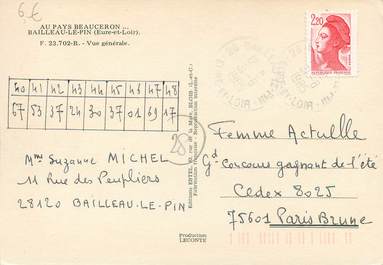 6€
AU PAYS BEAUCERON ...
BAILLEAU-LE-PIN (Eure-et-Loir).
F. 23.702-R. - Vue générale.
40 41 42 43 44 45 46 47 48
67 53 37 24 30 37 01 69 17
Mme Suzanne MICHEL
11 Rue des Peupliers
28120 BAILLEAU-LE-PIN
28
2,20
Femme Actuelle
Gd concours gagnant de l'été
Cedex 8025
75601 Paris Brune
Production
LECONTE